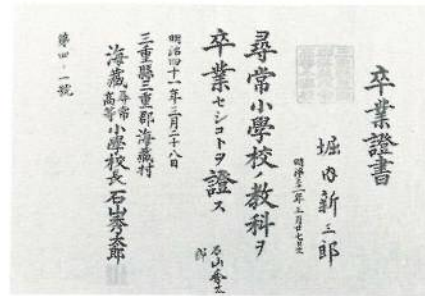 卒業證書
堀内新三郎
尋常小學校ノ教科ヲ
卒業セシコトヲ證ス
明治四十一年三月二十八日
三重縣三重郡海藏村
海藏尋常高等小學校長石山秀太郎
第四一號